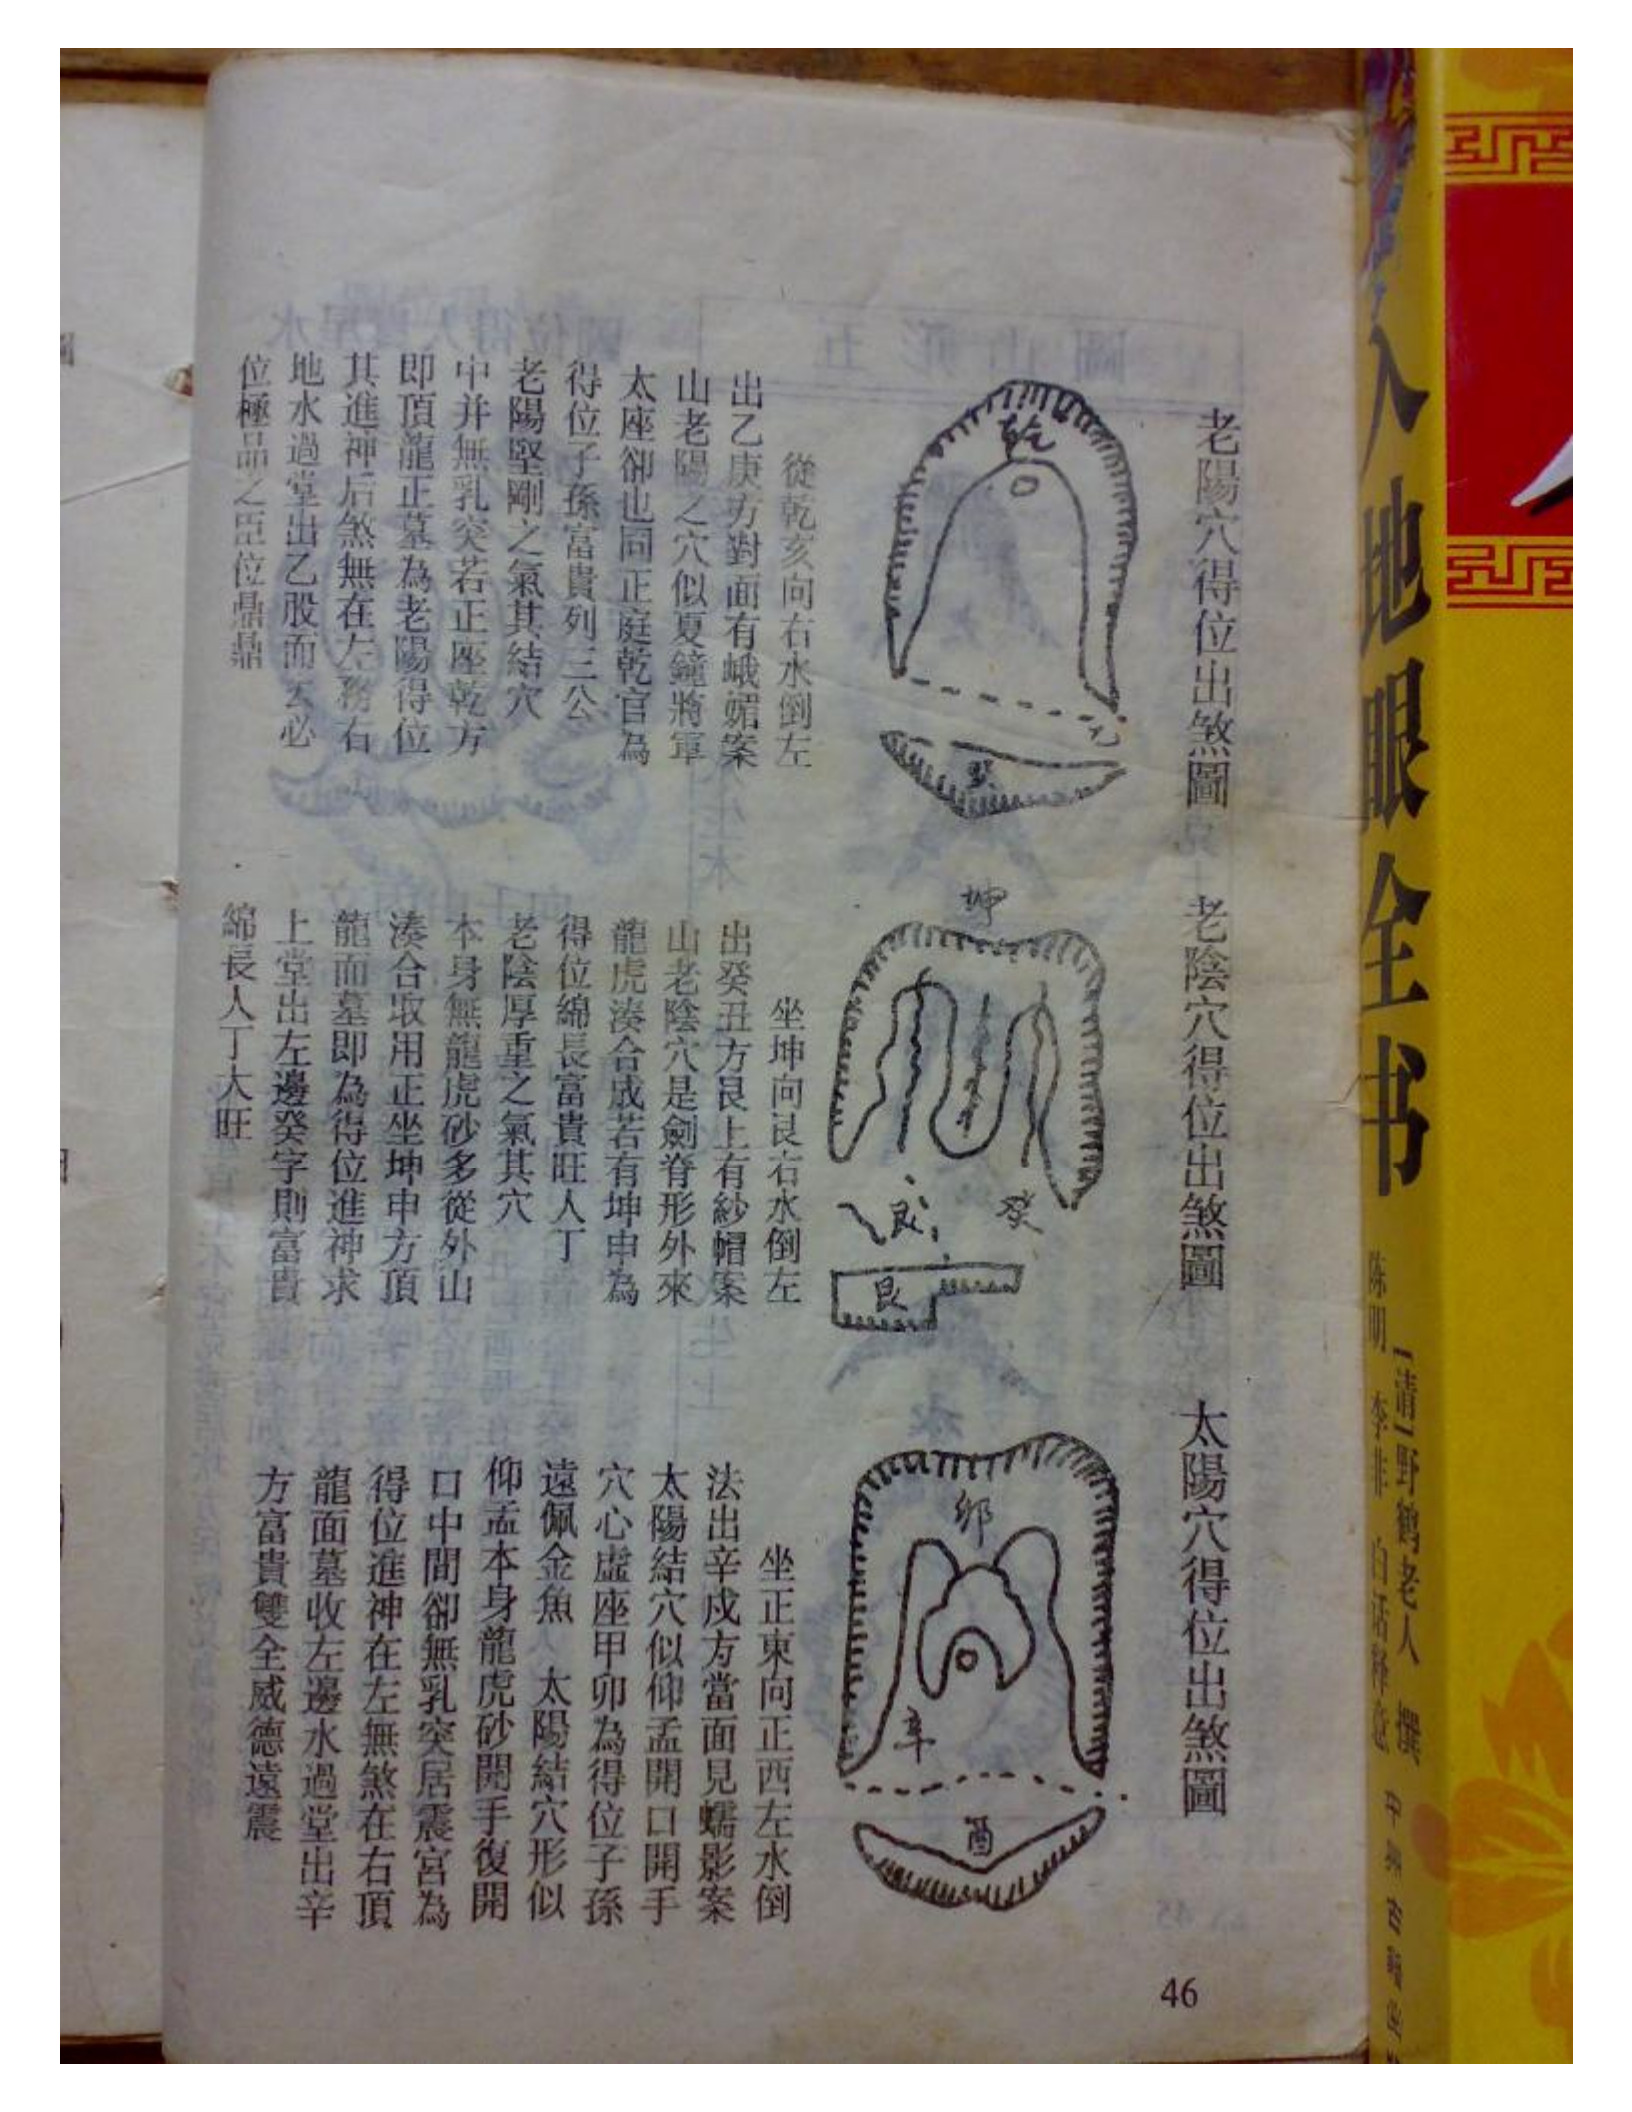 老陽穴得位出煞圖
乾
從乾亥向右水倒左
出乙庚方對面有蛾媚案
山老陽之穴似夏鐘將軍
太座卻也同正庭乾官為
得位子孫富貴列三公
老陽堅剛之氣其結穴
中并無乳突若正座乾方
即頂龍正墓為老陽得位
其進神后煞無在左務右
地水過堂出乙股而去必
位極品之臣位鼎鼎
老陰穴得位出煞圖
坤
艮
癸
艮
坐坤向艮右水倒左
出癸丑方艮上有紗帽案
山老陰穴是劍脊形外來
龍虎湊合成若有坤申為
得位綿長富貴旺人丁
老陰厚重之氣其穴
本身無龍虎砂多從外山
湊合取用正坐坤申方頂
龍而墓即為得位進神求
上堂出左邊癸字則富貴
綿長人丁大旺
太陽穴得位出煞圖
卯
辛
酉
坐正東向正西左水倒
法出辛戍方當面見蠕影案
太陽結穴似仰孟開口開手
穴心虛座甲卯為得位子孫
遠佩金魚 太陽結穴形似
仰孟本身龍虎砂開手復開
口中間卻無乳突居震宮為
得位進神在左無煞在右頂
龍面墓收左邊水過堂出辛
方富貴雙全威德遠震
46
入地眼全书
陈明 李非 白话释意
[清]野鹤老人 撰